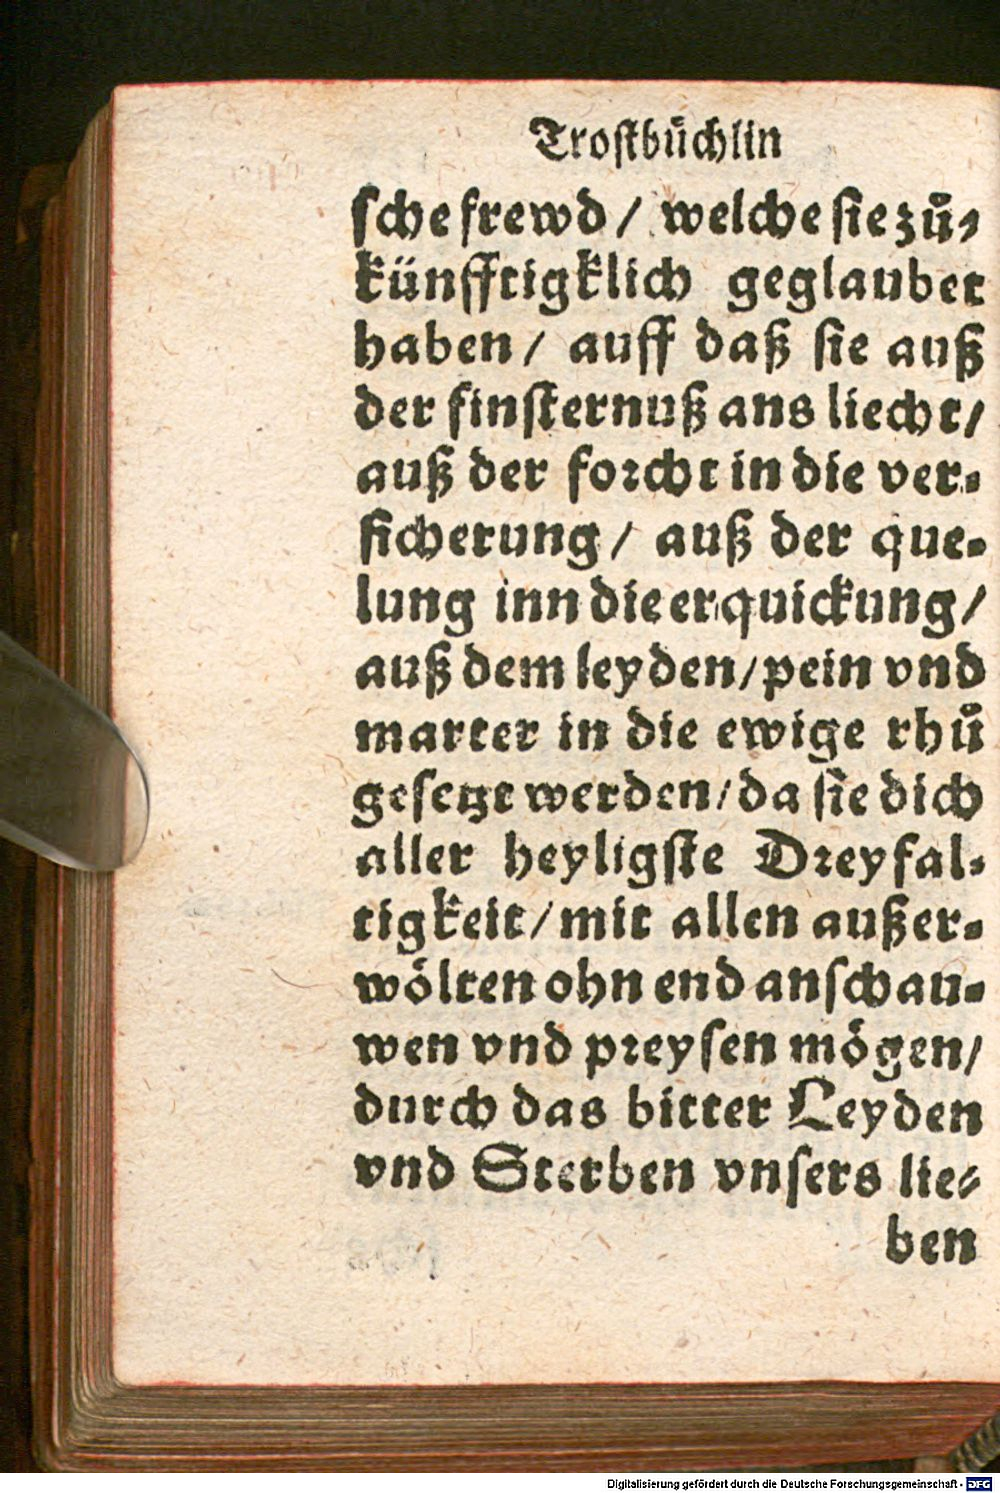 Trostbüchlin
sche frewd / welche sie zuͦ-
künfftigklich geglaubet
haben / auff daß sie auß
der finsternuß ans liecht /
auß der forcht in die ver-
sicherung / auß der que-
lung inn die erquickung /
auß dem leyden / pein vnd
marter in die ewige rhuͦ
gesetzt werden / da sie dich
aller heyligste Dreyfal-
tigkeit / mit allen außer-
wölten ohn end anschau-
wen vnd preysen mögen /
durch das bitter Leyden
vnd Sterben vnsers lie-
ben
Digitalisierung gefördert durch die Deutsche Forschungsgemeinschaft - DFG